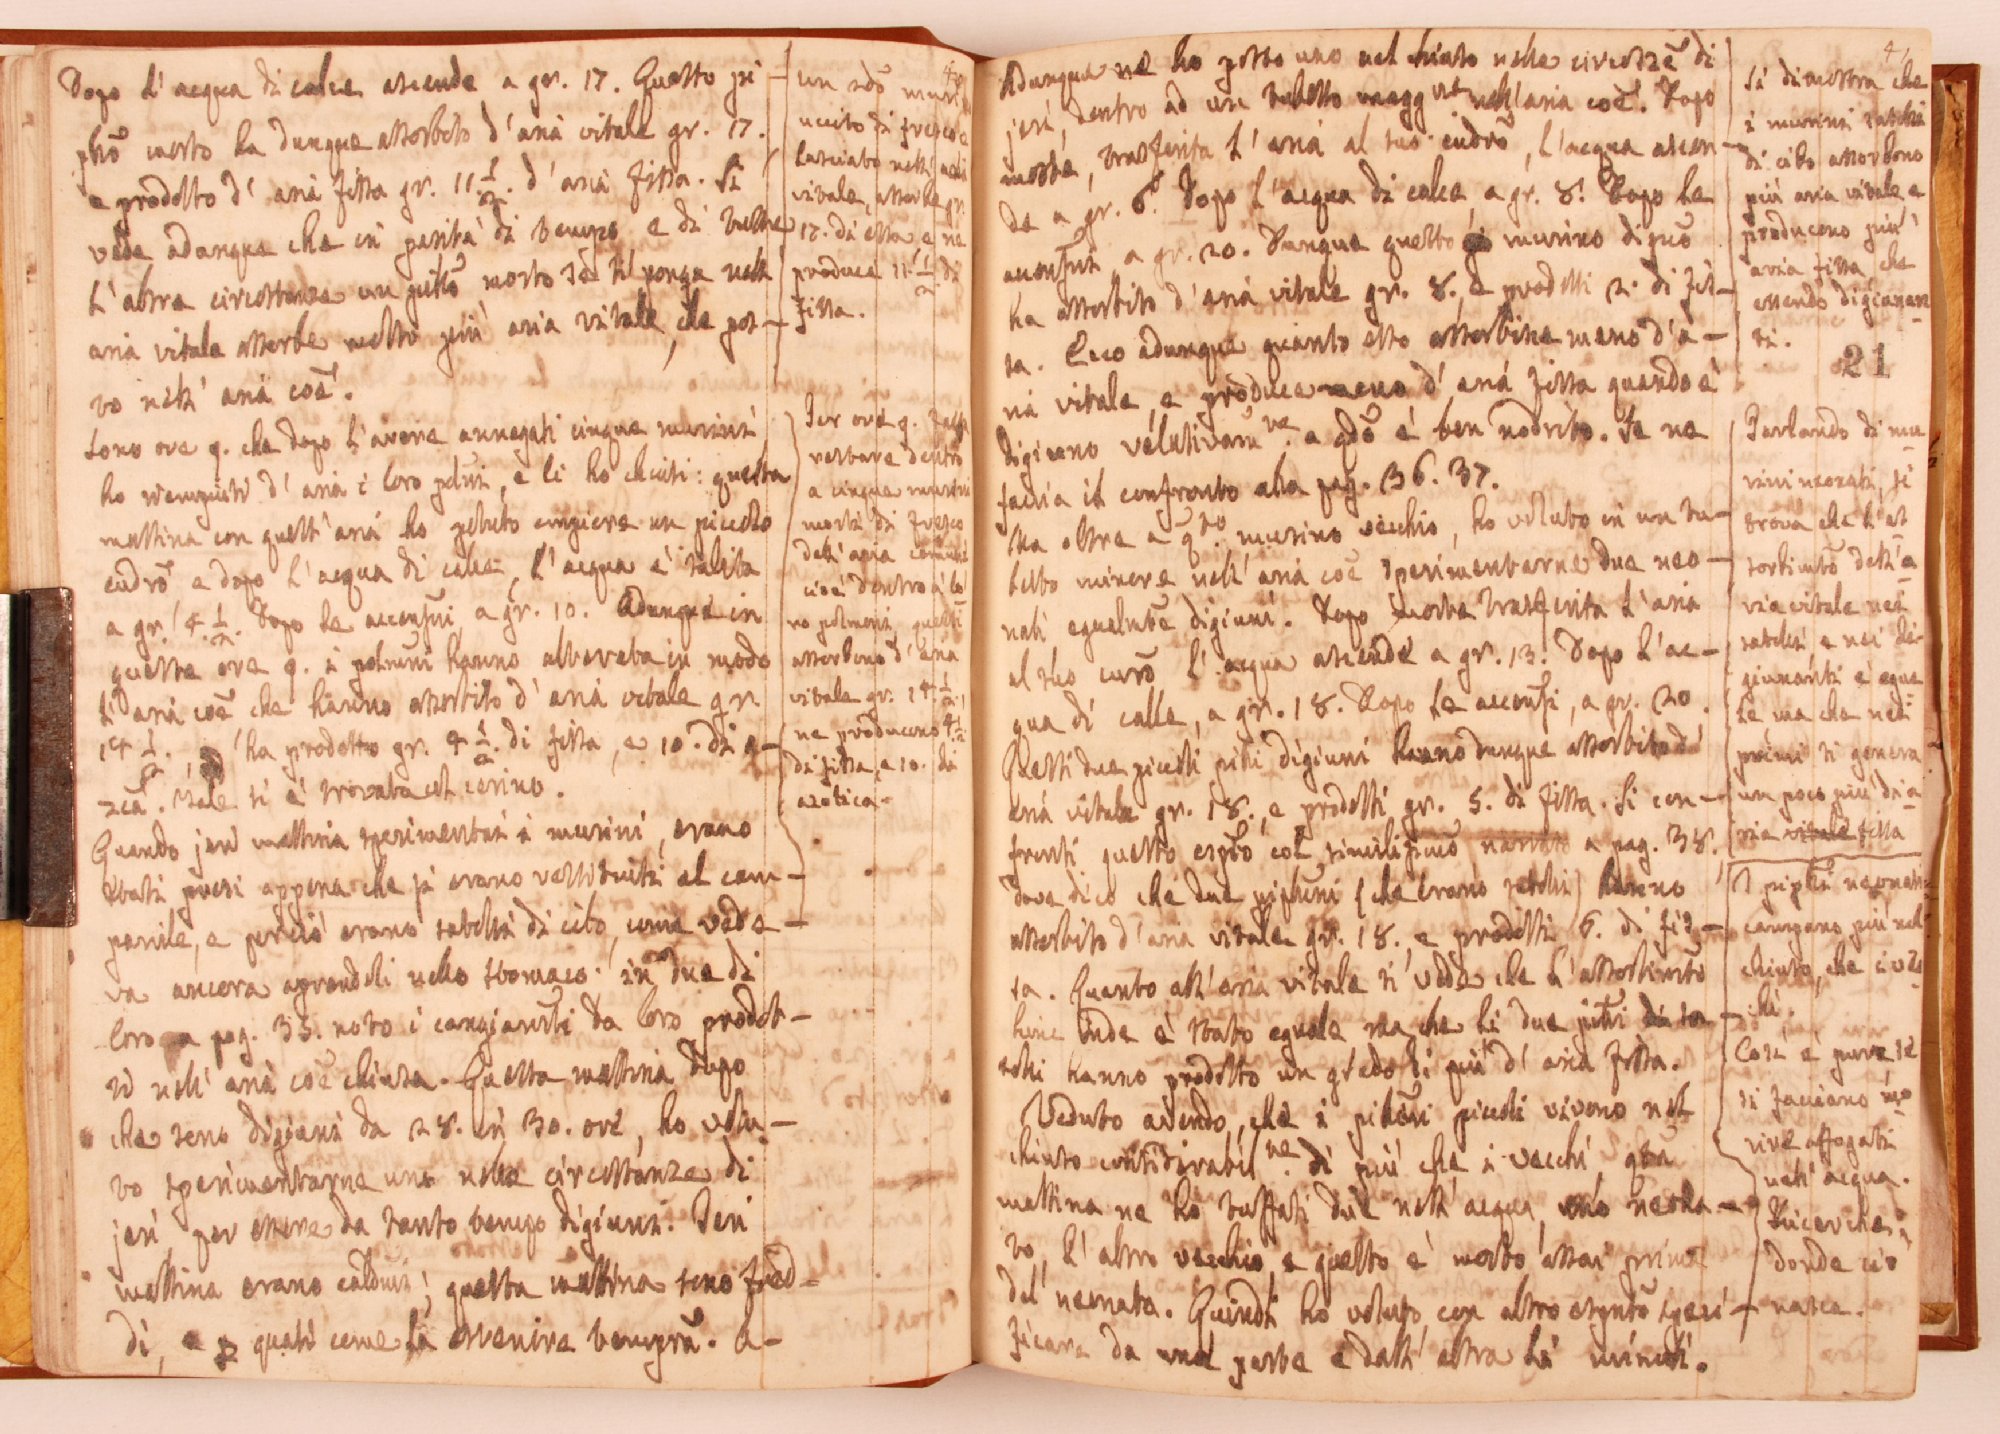 40
Dopo l'acqua di calce ascende a gr. 17. Questo pi-
pñõ morto ha dunque assorbito d'aria vitale gr. 17.
e prodotto d'aria fissa gr. 11 1/2. d'aria fissa. Si
vede adunque che in parità di tempo e di tutte
l'altre circostanze un pipñõ morto se si ponga nell'
aria vitale assorbe molto più aria vitale, che pos-
to nell'aria coẽ.
Sono ore 9. che dopo l'avere annegati cinque murini
ho riempiuti d'aria i loro polm̃i, e li ho chiusi: questa
mattina con quest'aria ho potuto empiere un piccolo
eudrõ e dopo l'acqua di calce, l'acqua è salita
a gr. 4. 1/2. Dopo le accensỹi a gr. 10. Adunque in
queste ore 9. i polmoni hanno alterata in modo
l'aria coẽ che hanno assorbito d'aria vitale gr.
14 1/2., ha prodotto gr. 4 1/2. di fissa, e 10. di a-
zca. Tale si è trovata col cerino.
Quando jeri mattina sperimentai i murini, erano
stati presi appena che si erano restituiti al cam-
panile, e perciò erano satolli di cibo, come vede-
va ancora aprendoli nello stomaco. in due di
loro a pag. 35. noto i cangiamti da loro prodot-
ti nell'aria coẽ chiusa. Questa mattina dopo
che sono digiuni da 28. in 30. ore, ho volu-
to sperimentarne uno nelle circostanze di
jeri per essere da tanto tempo digiuni. Jeri
mattina erano caldini; questa mattina sono fred-
di, e quasi come la esteriore temprã. A-
un sol murino
ucciso di fresco e
lasciato nell'aria
vitale, assorbe gr.
17. di essa e ne
produce 11. 1/2. di
fissa.
Per ore 9. lascia
restare dentro
a cinque murini
morti di fresco
dell'aria comune
cioè dentro a' lo-
ro polmoni, questi
assorbono d'aria
vitale gr. 14. 1/2.,
ne producono 4 1/2
di fissa, e 10. di
azotica.
41
Adunque ne ho posto uno nel chiuso nelle circostzẽ di
jeri, dentro ad un tubetto magg.re nell'aria coẽ. Dopo
morte, trasferita l'aria al suo eudrõ, l'acqua ascen-
de a gr. 6. Dopo l'acqua di calce, a gr. 8. Dopo le
accensỹi a gr. 20. Dunque questo murino digiuño
ha assorbito d'aria vitale gr. 8., e prodotti 2. di fis-
sa. Ecco adunque quanto esso assorbisse meno d'a-
ria vitale, e produce meno d'aria fissa quando è
digiuno relativam.te a qdo è ben nodrito. Se ne
faccia il confronto alla pag. 36. 37.
Ma oltre a q.to murino vecchio, ho voluto in un tu-
betto minore nell'aria coẽ sperimentarne due neo-
nati egualmte digiuni. Dopo morte trasferita l'aria
al suo eudrõ l'acqua ascende a gr. 13. Dopo l'ac-
qua di calce, a gr. 18. Dopo le accensỹi, a gr. 20.
Questi due piccoli pipi digiuni hanno dunque assorbito d'
aria vitale gr. 18., e prodotti gr. 5. di fissa. Si con-
fronti questo espto col similissimo narrato a pag. 38.
dove dico che due pipñi (che erano satolli) hanno
assorbito d'aria vitale gr. 18., e prodotti 6. di fis-
sa. Quanto all'aria vitale si vede che l'assorbimto
hinc inde è stato eguale ma che li due pipñi sa-
tolli hanno prodotto un grado di più d'aria fissa.
Veduto avendo, che i pipñi piccoli vivono nel
chiuso considerabil.te di più che i vecchi, qta
mattina ne ho tuffati due nell'acqua, uno neona-
to, l'altro vecchio, e questo è morto assai prima
del neonato. Quindi ho voluto con altro espto speci-
ficare da una parte e dall'altra li minuti.
Si dimostra che
i murini satolli
di cibo assorbono
più aria vitale e
producono più
aria fissa, che
essendo digiunan-
ti.
21
Parlando di mu-
rini neonati, si
trova che l'as-
sorbimto dell'a-
ria vitale nei
satolli e nei di-
giunanti è egua-
le ma che nei
primi si genera
un poco più di a-
ria vitale fissa
I pipñi neonati
campano più nel
chiuso, che i vec-
chi.
Così è pure se
si facciano mo-
rire affogati
nell'acqua.
Ricerche
donde ciò
nasca.